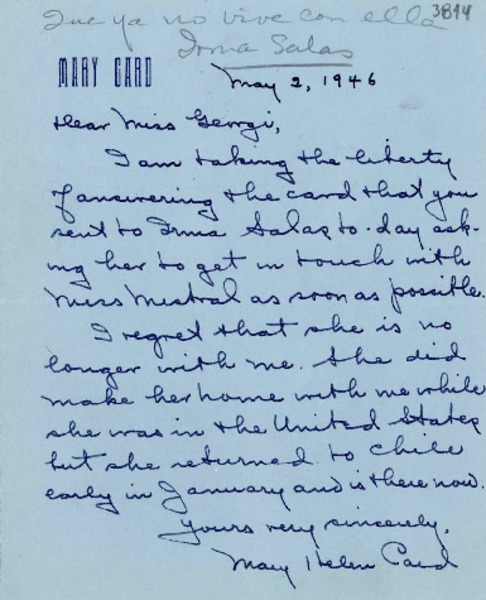 3894
Que ya no vive con ella
Irma Salas
MARY CARD
May 2, 1946
Dear Miss Georgi,
I am taking the liberty
of answering the card that you
sent to Irma Salas to-day ask-
ing her to get in touch with
Miss Mistral as soon as possible.
I regret that she is no
longer with me. She did
make her home with me while
she was in the United States
but she returned to Chile
early in January and is there now.
Yours very sincerely,
Mary Helen Card